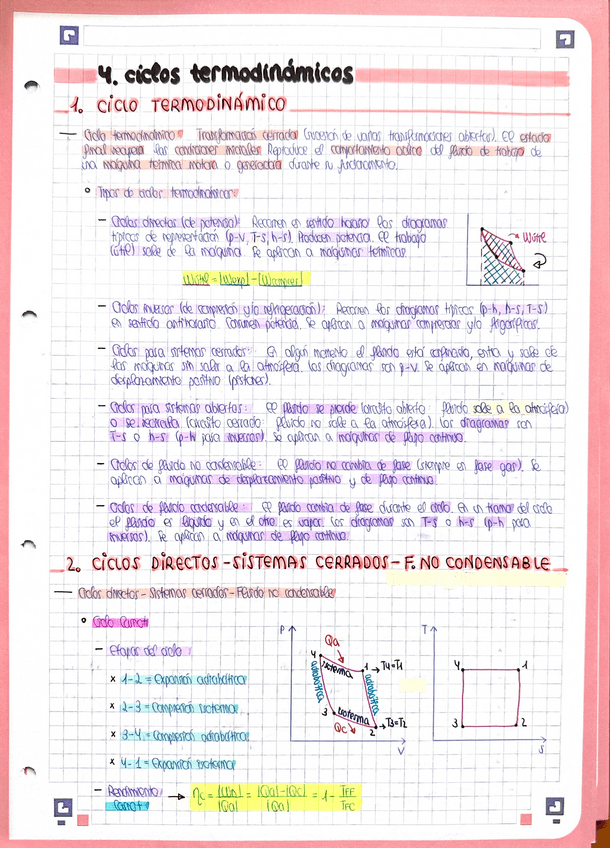 4. ciclos termodinámicos
1. CICLO TERMODINÁMICO
— Ciclo termodinámico: Transformación cerrada (sucesión de varias transformaciones abiertas). El estado
final recupera las condiciones iniciales. Reproduce el comportamiento cíclico del fluido de trabajo de
una máquina térmica motora o generadora durante su funcionamiento.
° Tipos de ciclos termodinámicos:
- Ciclos directos (de potencia): Recorren en sentido horario los diagramas
típicos de representación (p-v, T-s, h-s). Producen potencia. El trabajo
(útil) sale de la máquina. Se aplican a máquinas térmicas
Wútil
Wútil = |Wexp| - |Wcompres|
- Ciclos inversos (de compresión y/o refrigeración): Recorren los diagramas típicos (p-h, h-s, T-s)
en sentido antihorario. Consumen potencia. Se aplican a máquinas compresoras y/o frigoríficas.
- Ciclos para sistemas cerrados: En algún momento el fluido está confinado, entra y sale de
las máquinas sin salir a la atmósfera. Los diagramas son p-v. Se aplican en máquinas de
desplazamiento positivo (pistones).
- Ciclos para sistemas abiertos: El fluido se pierde (circuito abierto: fluido sale a la atmósfera)
o se recircula (circuito cerrado: fluido no sale a la atmósfera). Los diagramas son
T-s o h-s (p-h para inversos). Se aplican a máquinas de flujo continuo.
- Ciclos de fluido no condensable: El fluido no cambia de fase (siempre en fase gas). Se
aplican a máquinas de desplazamiento positivo y de flujo continuo.
- Ciclos de fluido condensable: El fluido cambia de fase durante el ciclo. En un tramo del ciclo
el fluido es líquido y en el otro es vapor. Los diagramas son T-s o h-s (p-h para
inversos). Se aplican a máquinas de flujo continuo.
2. CICLOS DIRECTOS - SISTEMAS CERRADOS - F. NO CONDENSABLE
— Ciclos directos - Sistemas cerrados - Fluido no condensable
° Ciclo Carnot
- Etapas del ciclo:
x 1-2 = Expansión adiabática
x 2-3 = Compresión isoterma
x 3-4 = Compresión adiabática
x 4-1 = Expansión isoterma
P
Qa
4
isoterma
1
T4=T1
adiabática
adiabática
3
isoterma
T3=T2
Qc
2
V
T
4
1
3
2
S
- Rendimiento Carnot → ηc = |Wn| / |Qa| = |Qa|-|Qc| / |Qa| = 1 - TFF / TFC